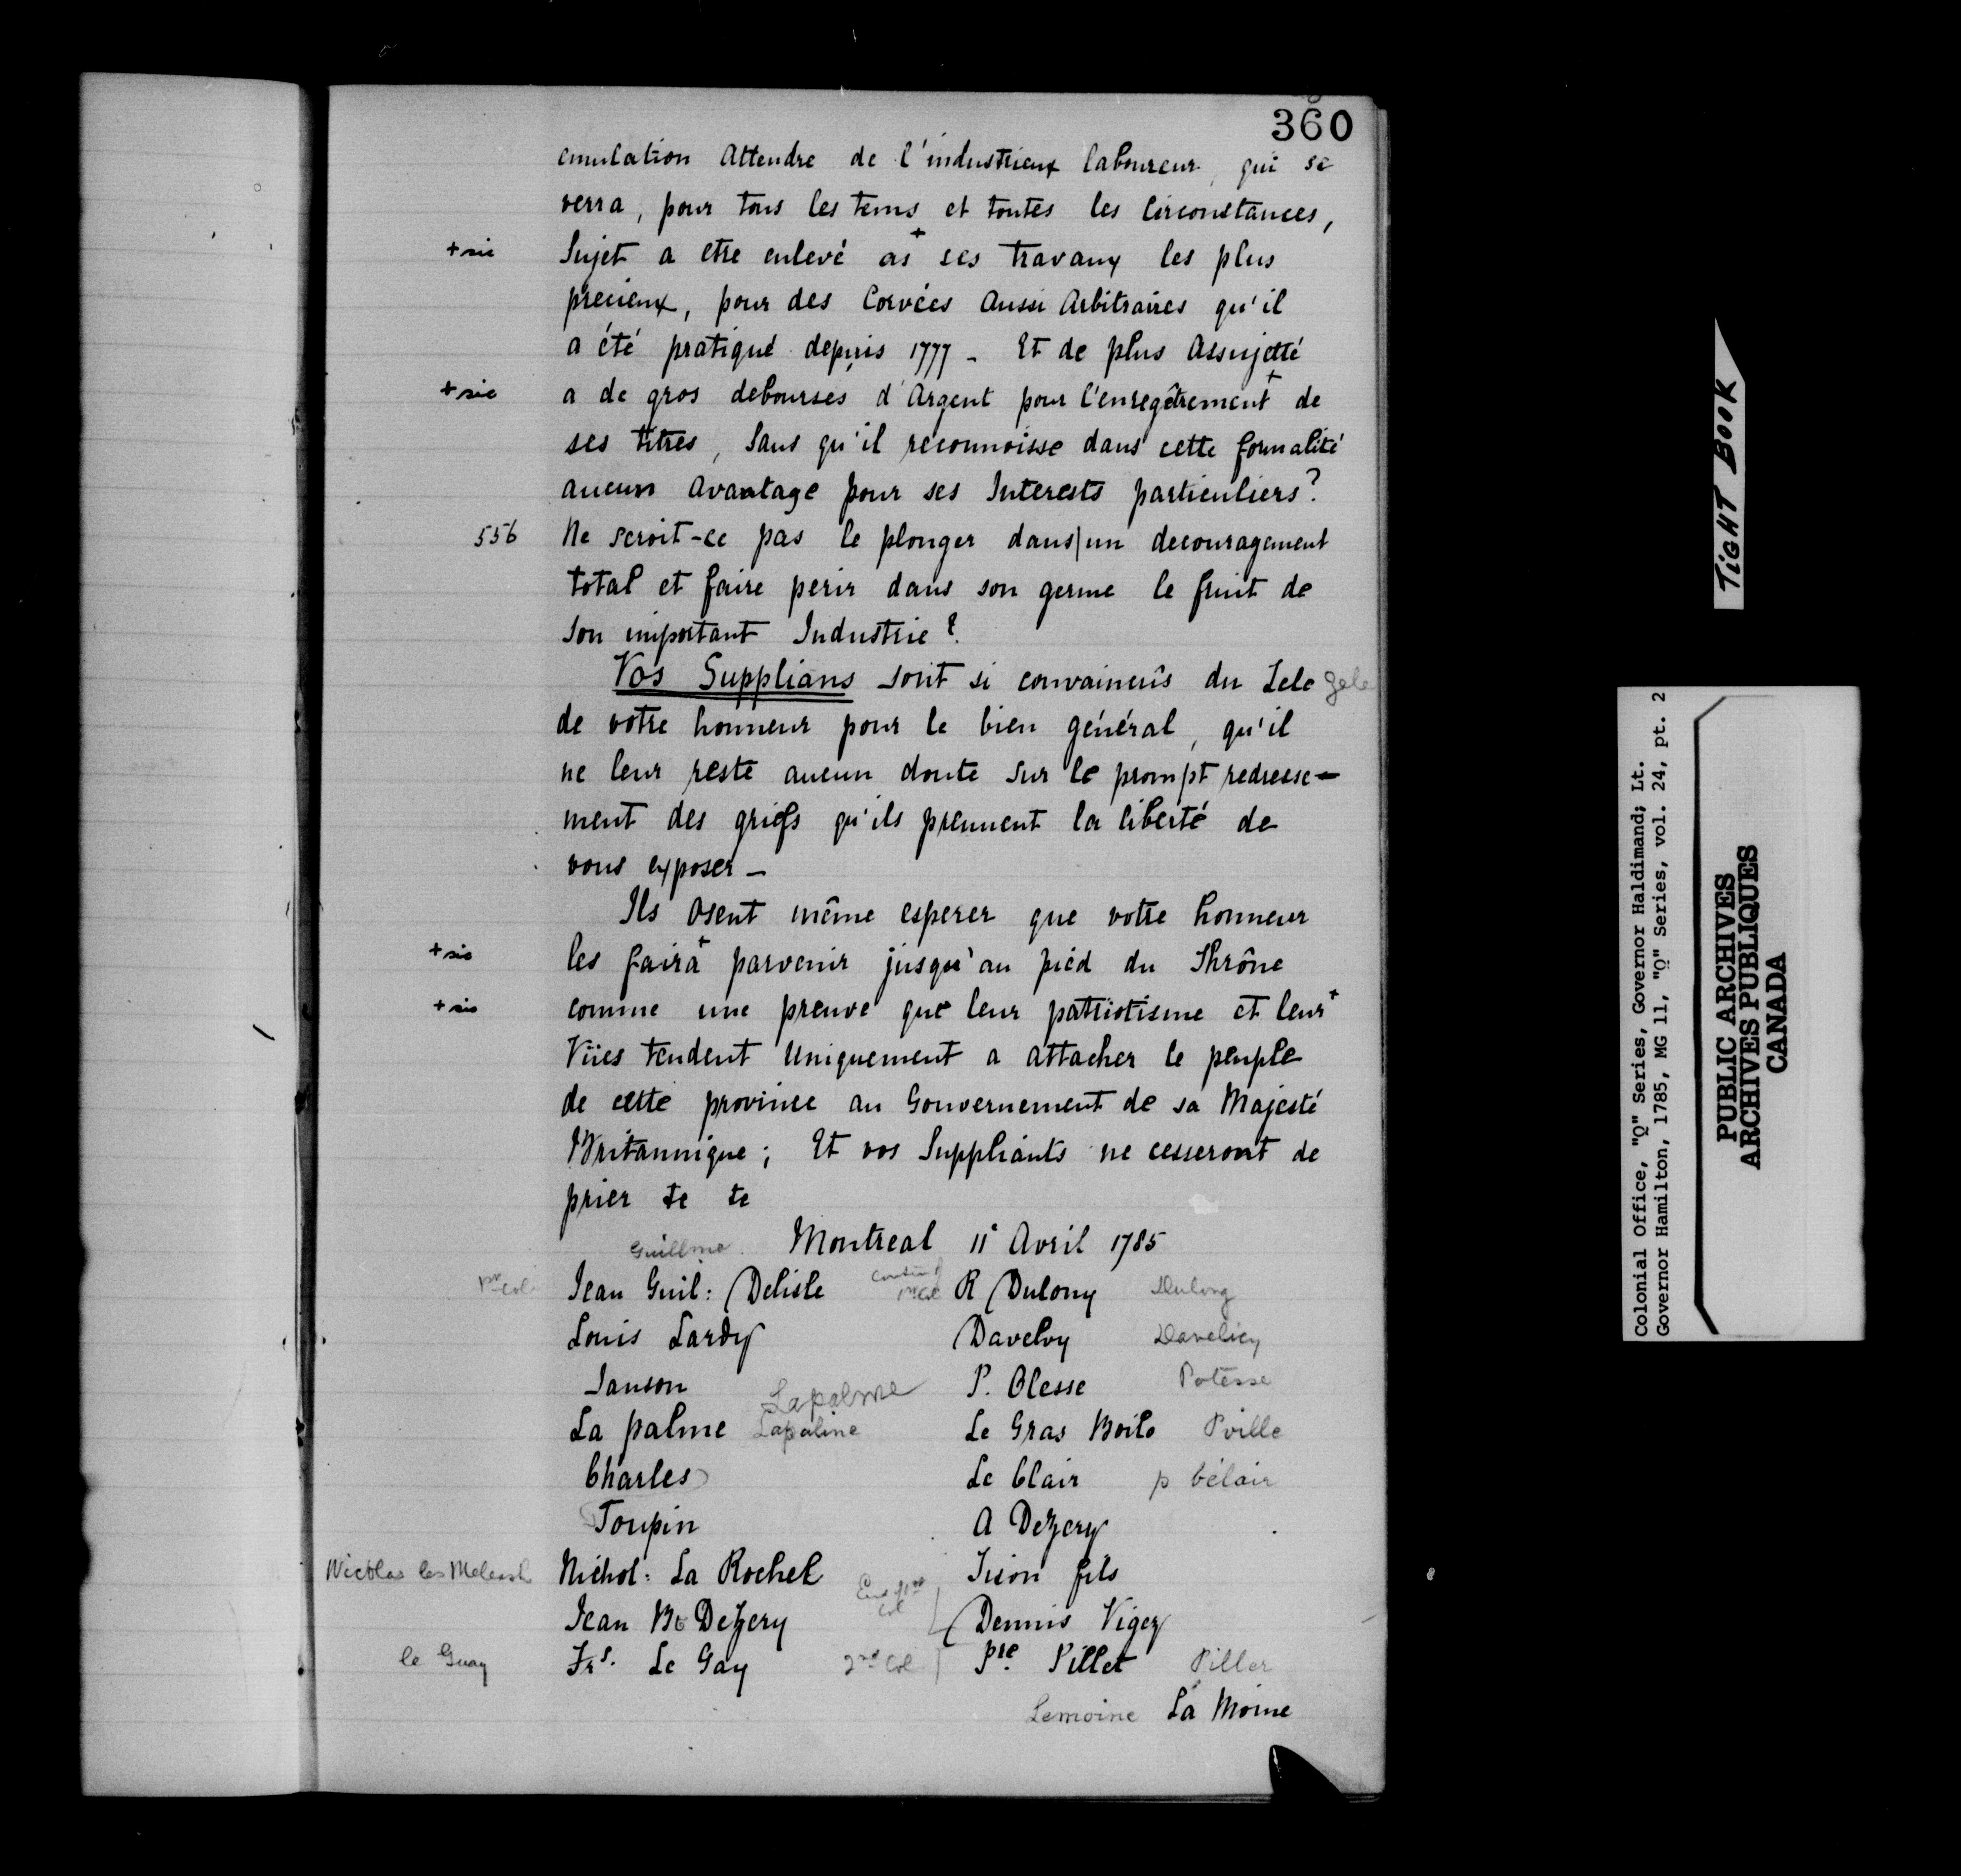 360
emulation Attendre de l'industrieux laboureur, qui se
verra, pour tous les tems et toutes les Circonstances,
+ sic Sujet a etre enlevé as + ses travaux les plus
precieux, pour des Corvées Aussi Arbitraires qu'il
a été pratiqué depuis 1777 - Et de plus Assujetté
+ sic a de gros deboursés d'Argent pour l'enregêtrement + de
ses titres, Sans qu'il reconnoisse dans cette formalité
aucun avantage pour ses Interests particuliers?
556 Ne seroit-ce pas le plonger dans|un decouragement
total et faire perir dans son germe le fruit de
Son important Industrie?
Vos Supplians sont si convaincûs du Zele Zele
de votre honneur pour le bien général, qu'il
ne leur reste aucun doute sur le prompt redresse-
ment des griefs qu'ils prennent la liberté de
vous exposer -
Ils Osent même esperer que votre honneur
+ sic les faira + parvenir jusqu'au pied du Thrône
+ sic comme une preuve que leur patriotisme et leur +
Vües tendent Uniquement a attacher le peuple
de cette province au Gouvernement de sa Majesté
Britannique; Et vos Suppliants ne cesseront de
prier &c &c
Guillme. Montreal 11 Avril 1785
1st col Jean Guil: Delisle contind 1st Col R Dulony Dulong
Louis Lardy Davelvy Davelicy
Janson P. Olesse Potesse
Lapalme
La palme Lapaline Le Gras Boile Pville
Charles Le Clair p bélair
Toupin A Dezery
Nicolas les Meleash Nichol: La Rochel Jison fils
End 1st col
Jean Bt Dezery Dennis Viger
le Guay Frs. Le Gay 2nd Col Pre Pillet Piller
Lemoine La Moine
TIGHT BOOK
Colonial Office, "Q" Series, Governor Haldimand; Lt.
Governor Hamilton, 1785, MG 11, "Q" Series, vol. 24, pt. 2
PUBLIC ARCHIVES
ARCHIVES PUBLIQUES
CANADA